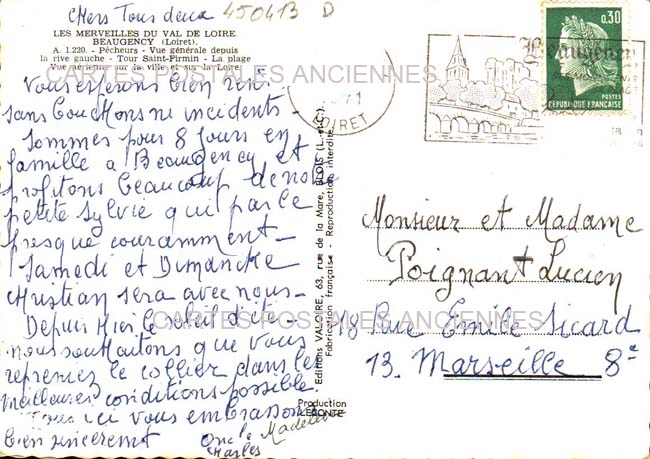 Chers Tous deux 450413 D
LES MERVEILLES DU VAL DE LOIRE
BEAUGENCY (Loiret).
A. 1.220. - Pêcheurs - Vue générale depuis
la rive gauche - Tour Saint-Firmin - La plage
Vue aérienne sur la ville et sur la Loire.
CARTES POSTALES ANCIENNES
Vous espérons bien
sans bouchons ne incidents -
Sommes pour 8 jours en
famille a Beaugency et
profitons beaucoup de notre
petite Sylvie qui parle
presque couramment -
Samedi et Dimanche
Christian sera avec nous -
Depuis Hier le soleil d'été -
nous souhaitons que vous
repreniez le collier dans les
meilleures conditions possible
Tous ici vous embrassons
bien sincèrement Oncle Madeleine
Charles
71
LOIRET
Beaugency
0,30
POSTES
REPUBLIQUE FRANÇAISE
Editions VALOIRE, 63, rue de la Mare, BLOIS (L.-et-C.)
Fabrication française - Reproduction interdite.
Production
LECONTE
Monsieur et Madame
Poignant Lucien
18 Rue Emile Sicard
13. Marseille 8e
CARTES POSTALES ANCIENNES